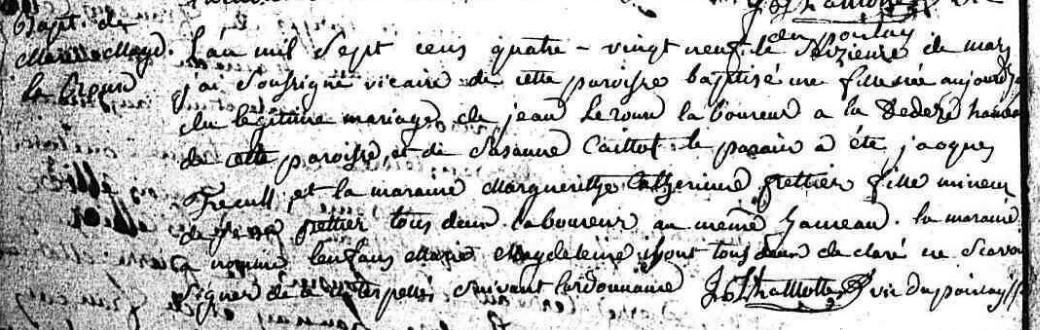 Bapt. de
Marie Magd.
le Roun
L'an mil sept cens quatre-vingt neuf le seizieme de mars
j'ai soussigné vicaire de cette paroisse baptisé une fille née aujourd'
du légitime mariage de jean Leroun laboureur a la Dedere hameau
de cette paroisse, et de Susanne Caillot le parain a été jacques
Frecull, et la maraine Margueritte Catherine frettier fille mineur
de frettier tous deux laboureur au même hameau. la maraine
a nommé lenfans Marie Magdeleine ont tous deux declaré ne scavoir
signer de ce interpellés suivant lordonnance J. Lhamotte vic du poislay